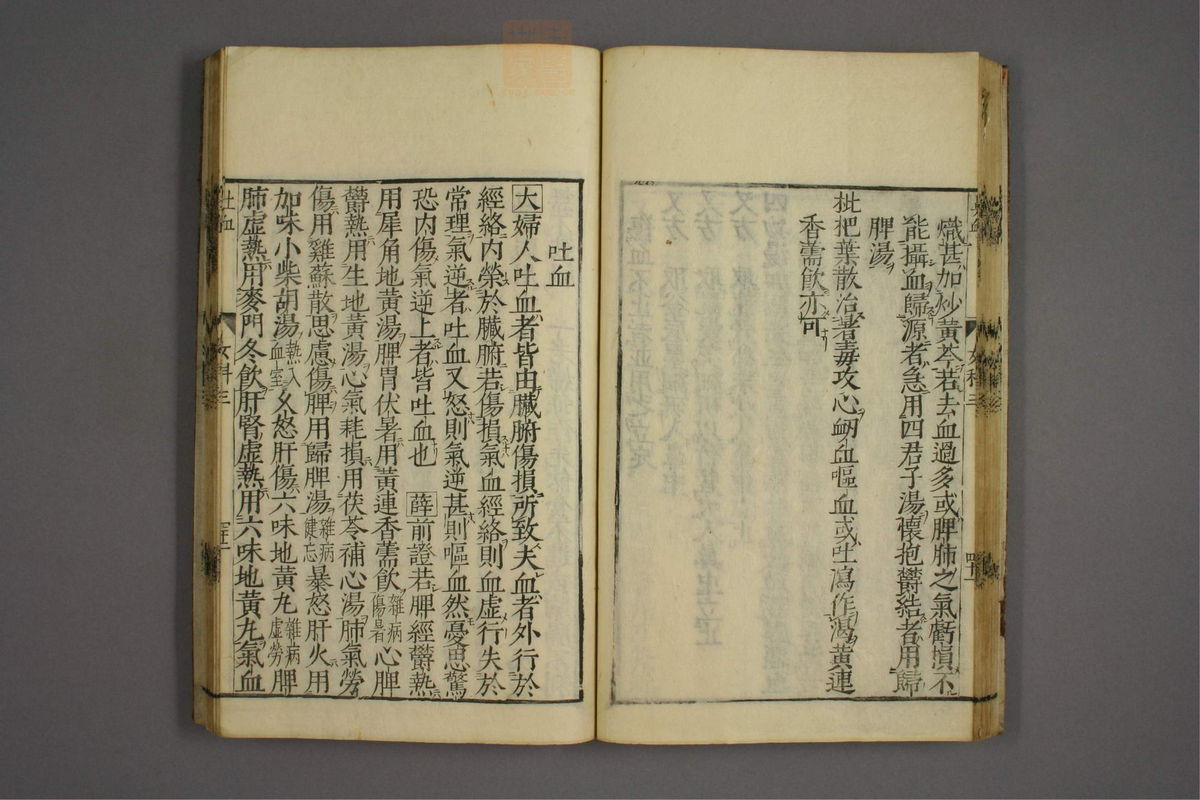 熾甚加炒黃芩若去血過多或脾肺之氣虧損不
能攝血歸源者急用四君子湯懷抱鬱結者用歸
脾湯
枇杷葉散治暑毒攻心衂血嘔血或吐瀉作渴黃連
香薷飲亦可
吐血
大婦人吐血者皆由臟腑傷損所致夫血者外行於
經絡內榮於臟腑若傷損氣血經絡則血虛行失於
常理氣逆者吐血又怒則氣逆甚則嘔血然憂思驚
恐內傷氣逆上者皆吐血也 薛前證若脾經鬱熱
用犀角地黃湯脾胃伏暑用黃連香薷飲雜病傷暑心脾
鬱熱用生地黃湯心氣耗損用茯苓補心湯肺氣勞
傷用雞蘇散思慮傷脾用歸脾湯雜病健忘暴怒肝火用
加味小柴胡湯熱入血室久怒肝傷六味地黃丸雜病虛勞脾
肺虛熱用麥門冬飲肝腎虛熱用六味地黃丸氣血
吐血
女科三